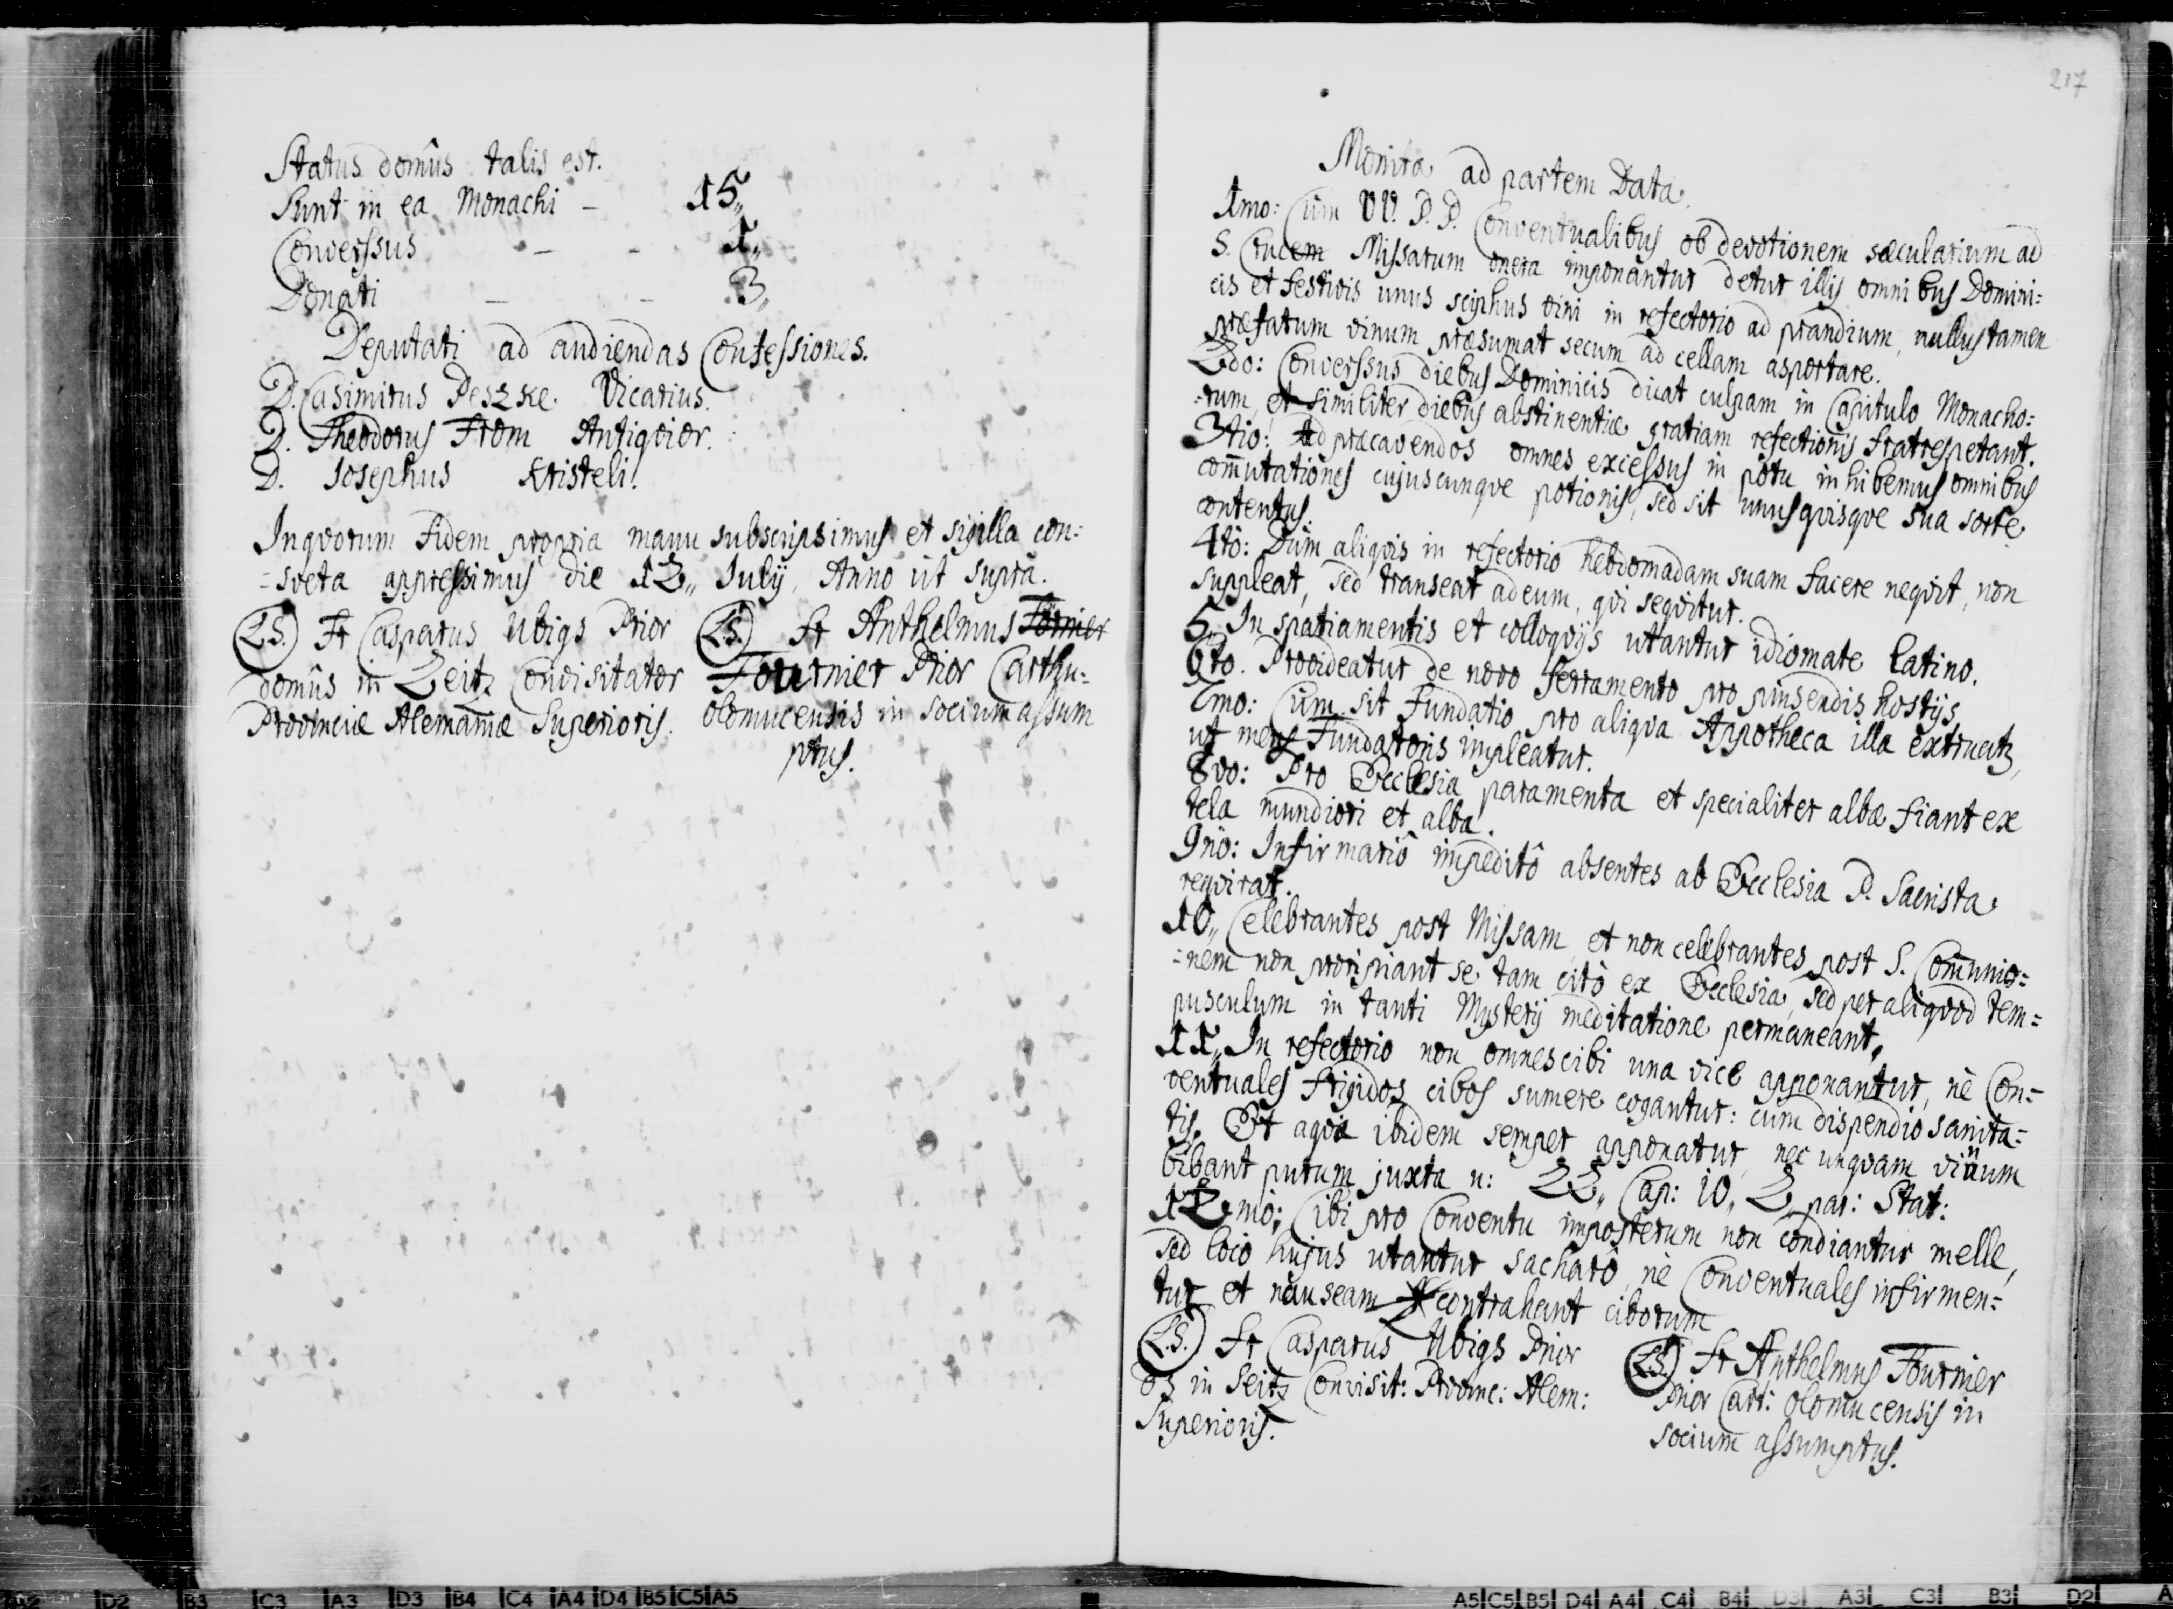 Status domûs talis est.
Sunt in ea Monachi - 15,,
Converssus - - 1,,
Donati - - 3,,
Deputati ad audiendas Confessiones.
D. Casimirus Peszke Vicarius.
D. Theodorus From Antiqvior.
D. Iosephus Kristeli.
Inqvorum fidem propria manu subscripsimus et sigilla con:
=sveta appressimus die 12,, Iulij, Anno ut supra.
L.S. Fr Casparus Ubigs Prior
domûs in Zeitz Convisitator
Provinciæ Alemaniæ Superioris.
L.S. fr Anthelmus Fornier
Fournier Prior Carthu:
olomucensis in socium assum
ptus.
217
Monita ad partem Data.
1mo: Cum VV. P. P. Conventualibus ob devotionem sæcularium ad
S. Crucem Missarum onera imponantur detur illis omnibus Domini:
cis et festivis unus sciphus vini in refectorio ad prandium, nullus tamen
præfatum vinum præsumat secum ad cellam asportare.
2do: Converssus diebus Dominicis dicat culpam in Capitulo Monacho:
=rum, et similiter diebus abstinentiæ gratiam refectionis fratres petant.
3tio: Ad præcavendos omnes excessus in potu inhibemus omnibus
com̄utationes cujuscunqve potionis, sed sit unusqvisqve sua sorte
contentus.
4tò: Dum aliqvis in refectorio hebdomadam suam facere neqvit, non
suppleat, sed transeat ad eum, qvi seqvitur.
5. In spatiamentis et colloqvijs utantur idiomate latino.
6to. Provideatur de novo ferramento pro pinsendis hostijs
7mo: Cum sit fundatio pro aliqva Appotheca illa extruatz,
ut mens Fundatoris impleatur.
8vo: Pro Ecclesia paramenta et specialiter albæ fiant ex
tela mundiori et alba.
9nò: Infirmariô impeditô absentes ab Ecclesia P. Sacrista
reqvirat.
10,, Celebrantes post Missam et non celebrantes post S. Com̄unio:
=nem non proripiant se tam citò ex Ecclesia, sed per aliqvod tem:
pusculum in tanti Mysterij meditatione permaneant.
11,, In refectorio non omnes cibi una vice apponantur, nè Con:
ventuales frigidos cibos sumere cogantur: cum dispendio sanita:
tis. Et aqva ibidem semper apponatur, nec unqvam vinum
bibant purum juxta n: 22,, Cap: 10,, 2 par: Stat:
12mò: Cibi pro Conventu imposterum non condiantur melle,
sed loco hujus utantur sacharô, nè Conventuales infirmen:
tur et nauseam contrahant ciborum
L.S. fr Casparus Ubigs Prior
D9 in Seitz Convisit: Provinc: Alem:
Superioris.
L.S. fr Anthelmus Fournier
Prior Cart: olomucensis in
socium assumptus.
A2 D2 B3 C3 A3 D3 B4 C4 A4 D4 B5 C5 A5
A5 C5 B5 D4 A4 C4 B4 D3 A3 C3 B3 D2 A